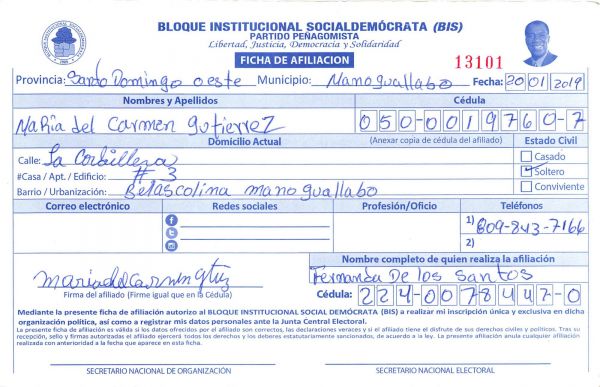 BLOQUE INSTITUCIONAL SOCIALDEMÓCRATA (BIS)
PARTIDO PEÑAGOMISTA
Libertad, Justicia, Democracia y Solidaridad
FICHA DE AFILIACION
13101
Provincia: Santo Domingo oeste Municipio: Manoguallabo Fecha: 20 01 2019
Nombres y Apellidos Cédula
Maria del Carmen gutierrez 050-0019760-7
Domicilio Actual (Anexar copia de cédula del afiliado) Estado Civil
Calle: La Cordillera Casado
#Casa / Apt. / Edificio: # 3 Soltero
Barrio / Urbanización: Belascolina manoguallabo Conviviente
Correo electrónico Redes sociales Profesión/Oficio Teléfonos
1) 809-843-7166
2)
Nombre completo de quien realiza la afiliación
Fernanda De los Santos
Firma del afiliado (Firme igual que en la Cédula)
Cédula: 224-0078447-0
Mediante la presente ficha de afiliación autorizo al BLOQUE INSTITUCIONAL SOCIAL DEMÓCRATA (BIS) a realizar mi inscripción única y exclusiva en dicha
organización política, así como a registrar mis datos personales ante la Junta Central Electoral.
La presente ficha de afiliación es válida si los datos ofrecidos por el afiliado son correctos, las declaraciones veraces y si el afiliado tiene el disfrute de sus derechos civiles y políticos. Tras su
recepción, sello y firmas autorizadas el afiliado ejercerá todos los derechos y los deberes estatutariamente sancionados, de acuerdo a la ley. La presente afiliación anula cualquier afiliación
realizada con anterioridad a la fecha que aparece en esta ficha.
SECRETARIO NACIONAL DE ORGANIZACIÓN SECRETARIO NACIONAL ELECTORAL